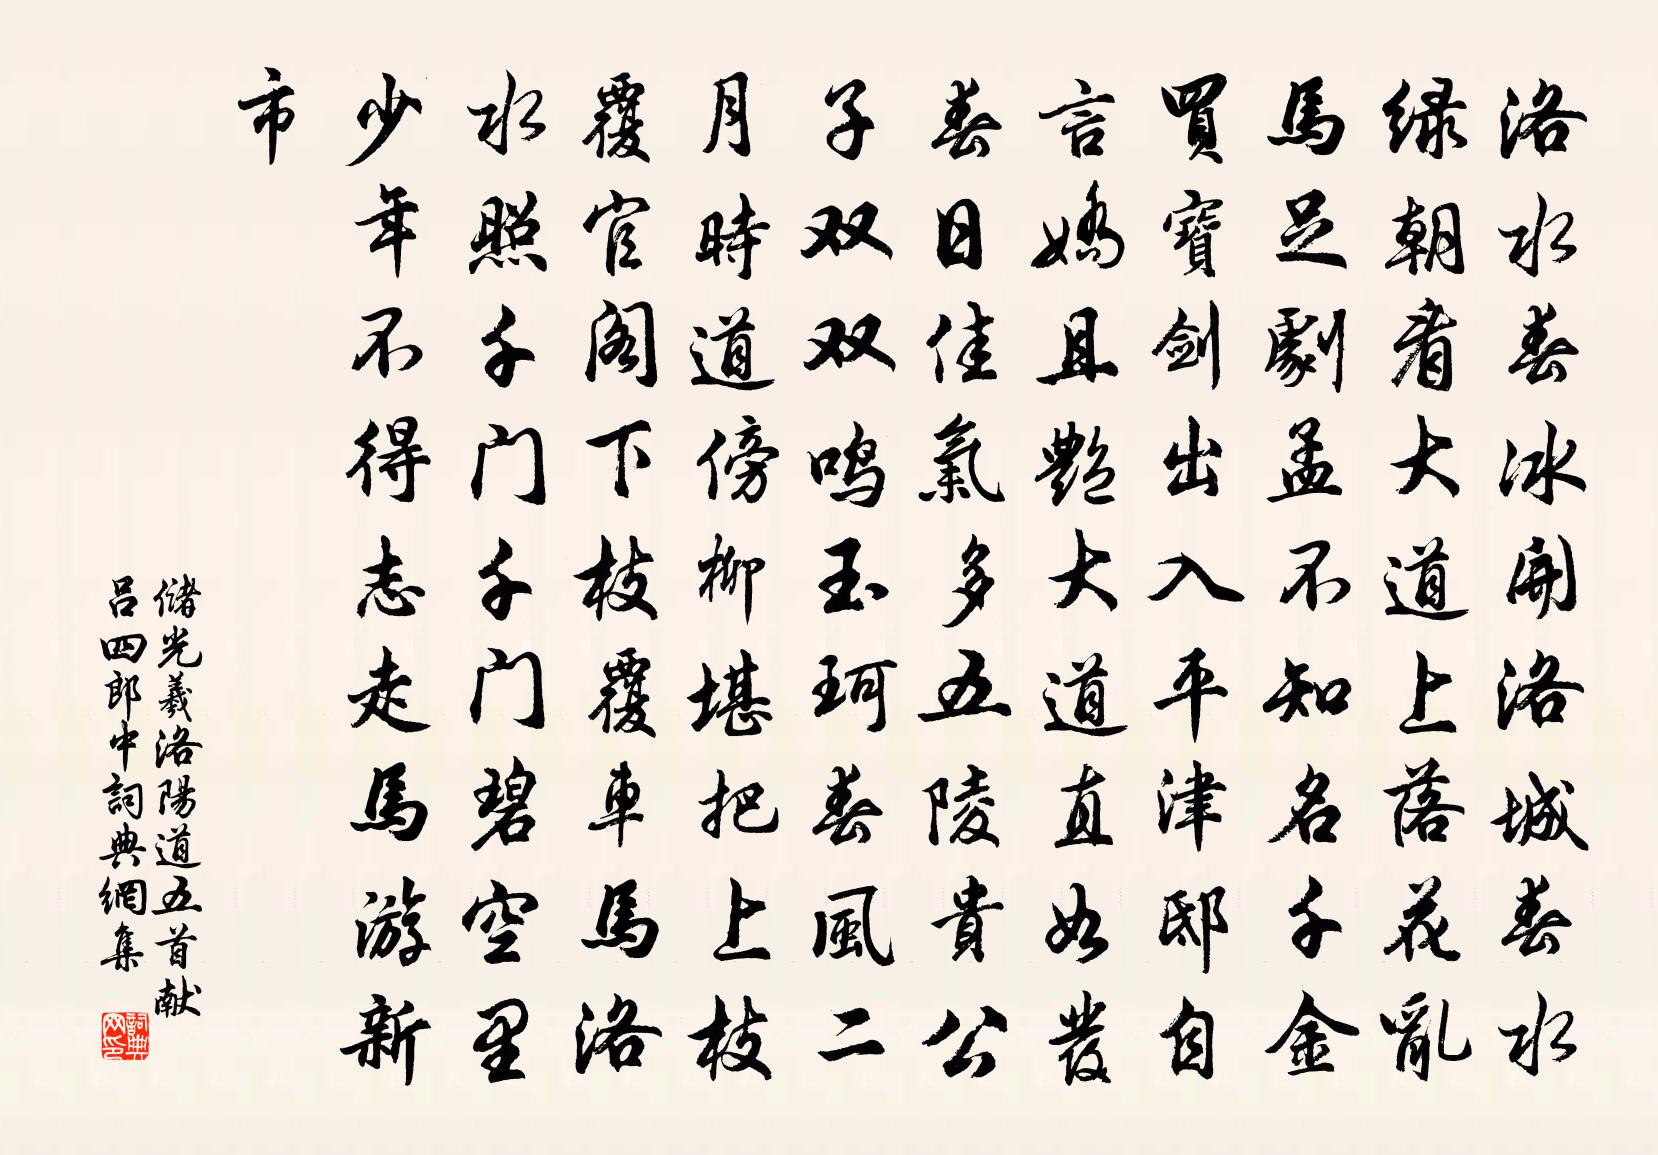 洛水春冰開洛城春水
绿朝看大道上落花亂
馬足劇孟不知名千金
買寶劍出入平津邸自
言嬌且艷大道直如髮
春日佳氣多五陵貴公
子双双鸣玉珂春風二
月時道傍柳堪把上枝
覆官阁下枝覆車馬洛
水照千门千门碧空里
少年不得志走馬游新
市
儲光羲洛陽道五首献
吕四郎中詞典網集
詞典
网印